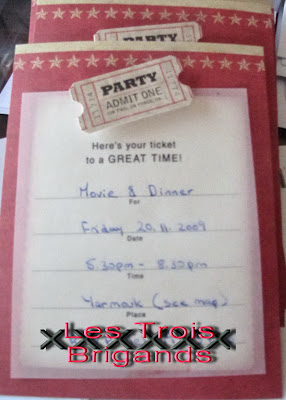 PARTY
ADMIT ONE
Here's your ticket
to a GREAT TIME!
Movie & Dinner
For
Friday 20.11.2009
Date
5.30pm - 8.30pm
Time
Yarmouk (see map)
Place
xxxxxxxx
Les Trois
Brigands